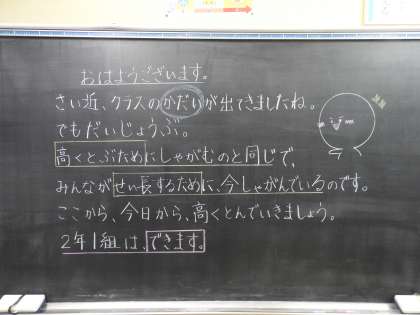 おはようございます。
さい近、クラスのかだいが出てきましたね。
でもだいじょうぶ。
高くとぶためにしゃがむのと同じで、
みんながせい長するために、今しゃがんでいるのです。
ここから、今日から、高くとんでいきましょう。
2年1組は、できます。